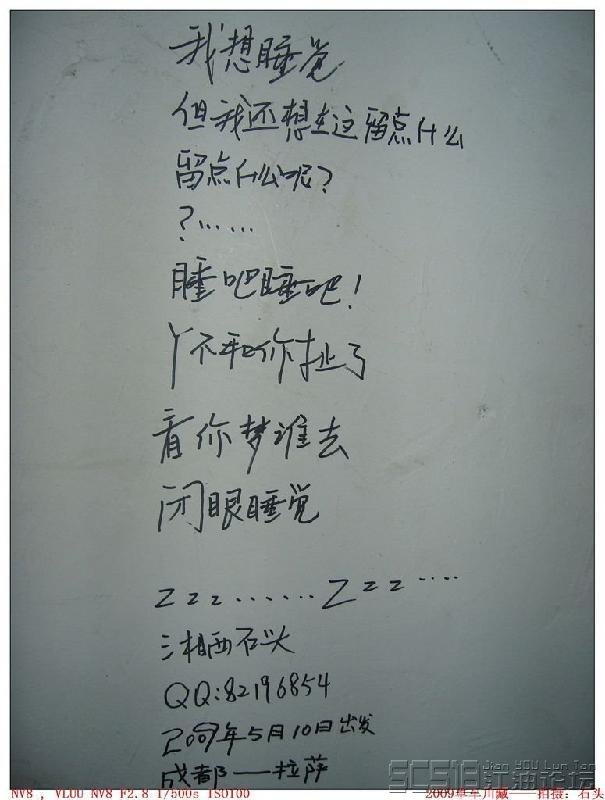 我想睡觉
但我还想在这留点什么
留点什么呢?
?……
睡吧睡吧!
丫不和你扯了
看你梦谁去
闭眼睡觉
Zzz.......Zzz.....
湘西石头
QQ:82196854
2009年5月10日出发
成都——拉萨
NV8 , VLUU NV8 F2.8 1/500s ISO100
2009单车川藏——拍摄:石头
SCSJB 江油论坛